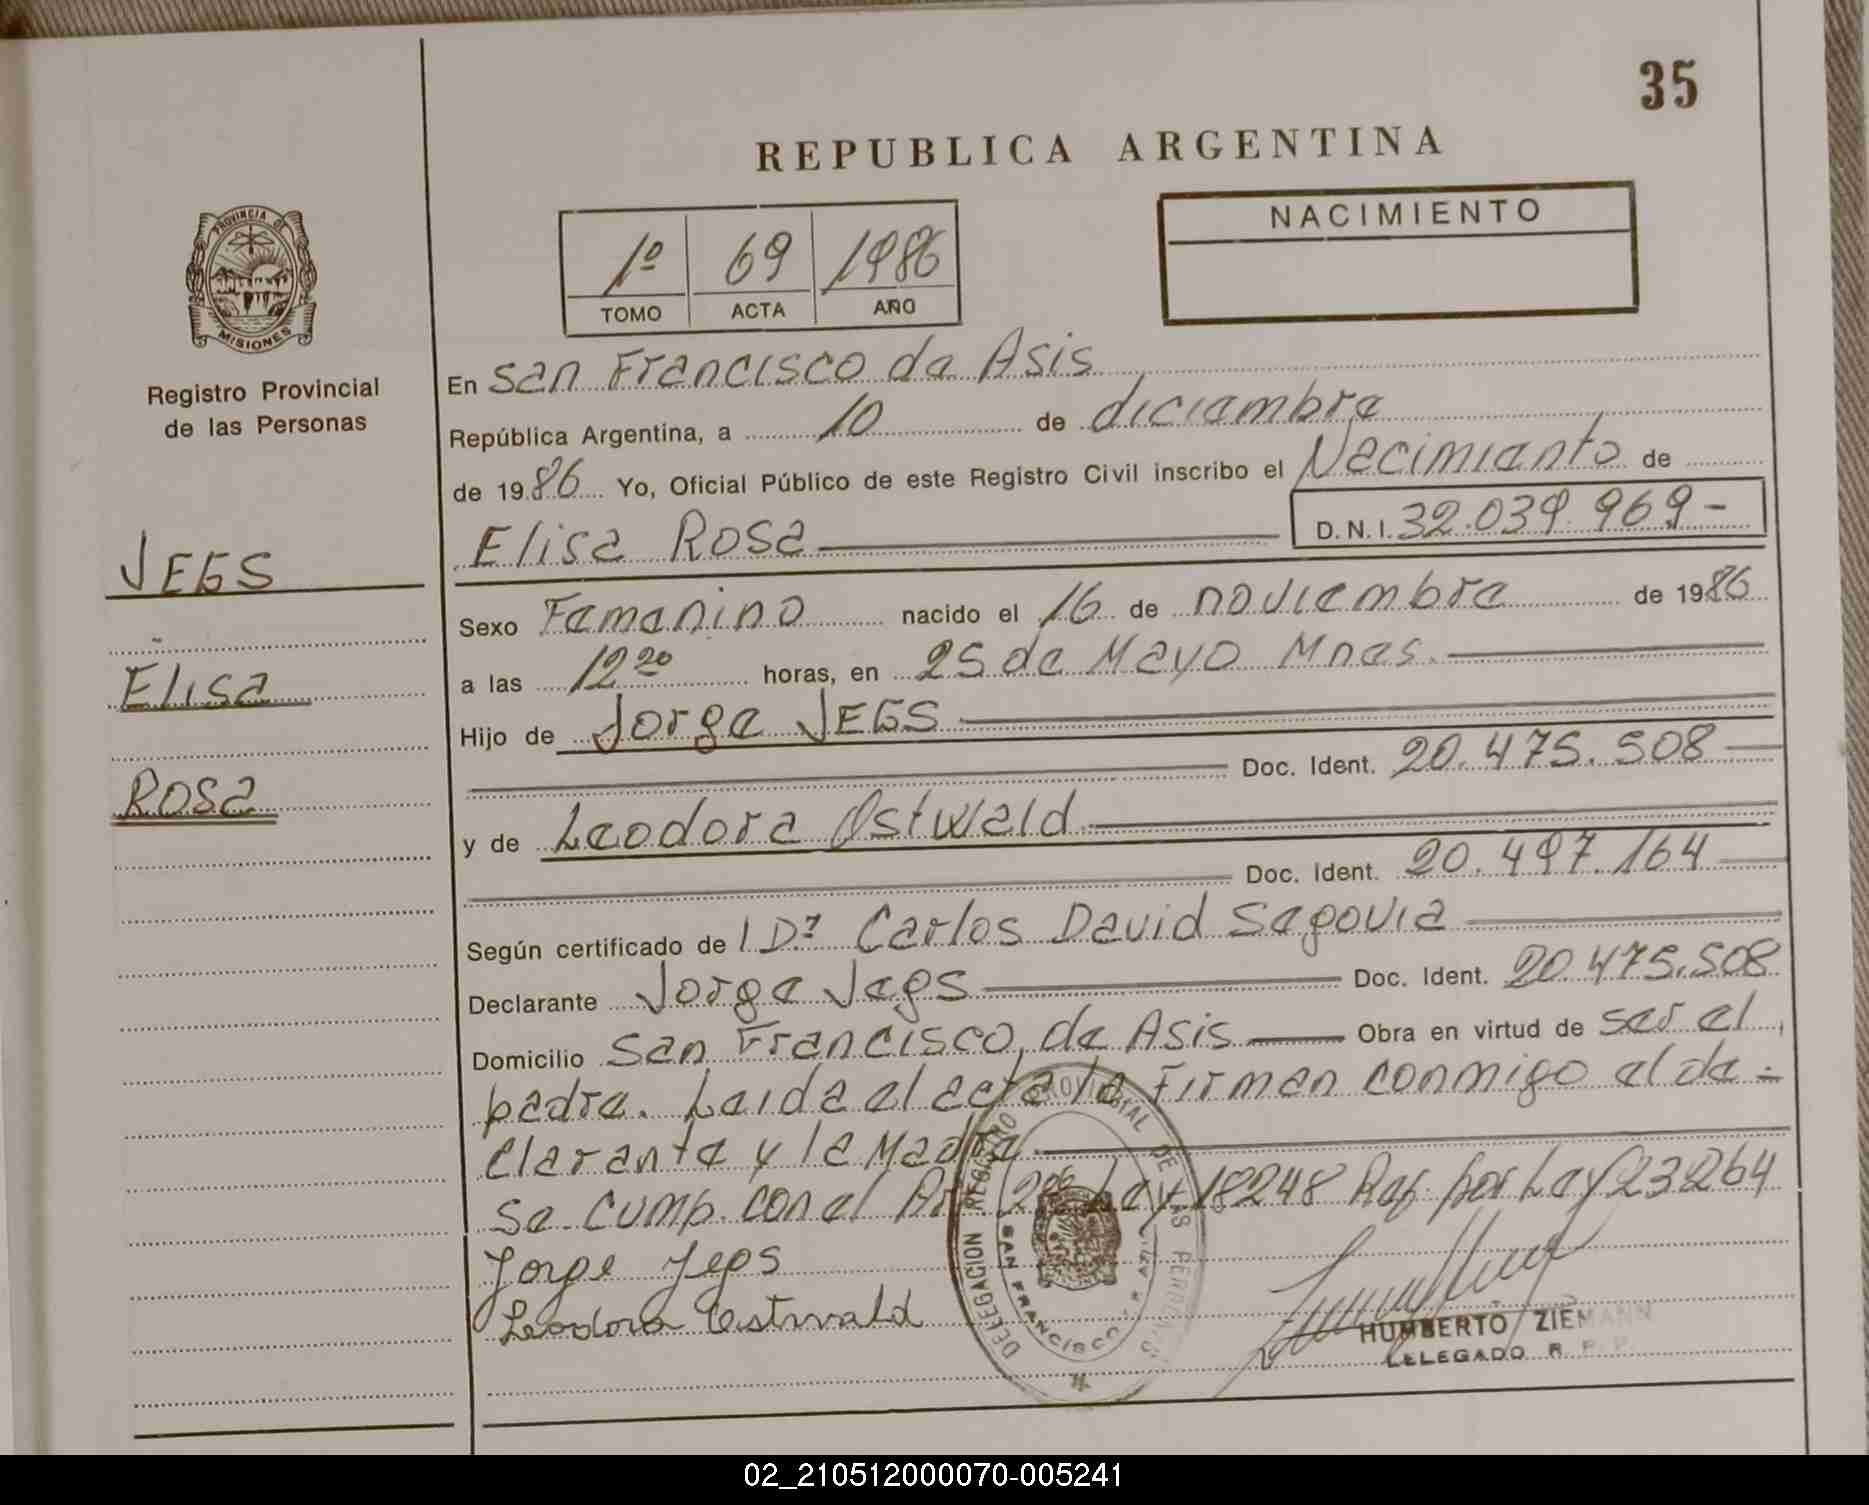 35
REPUBLICA ARGENTINA
1º 69 1986
TOMO ACTA AÑO
NACIMIENTO
PROVINCIA DE
MISIONES
Registro Provincial
de las Personas
JEGS
Elisa
Rosa
En San Francisco de Asis
República Argentina, a 10 de diciembre
de 1986 Yo, Oficial Público de este Registro Civil inscribo el Nacimiento de
Elisa Rosa D.N.I. 32.039.969-
Sexo Femenino nacido el 16 de noviembre de 1986
a las 12 20 horas, en 25 de Mayo Mnes.
Hijo de Jorge JEGS
Doc. Ident. 20.475.508
y de Leodora Ostwald
Doc. Ident. 20.497.164
Según certificado de Carlos David Segovia
Declarante Jorge Jegs Doc. Ident. 20.475.508
Domicilio San Francisco de Asis Obra en virtud de ser el
padre. Leida el acta la Firman conmigo el de-
clarante y la Madre
Se cump. con el Art. Ley 18248 por Ley 23264
Jorge Jegs
Leodora Ostwald
DELEGACION REGISTRO PROVINCIAL DE LAS PERSONAS
SAN FRANCISCO
HUMBERTO ZIEMANN
DELEGADO R. P. P.
02_210512000070-005241